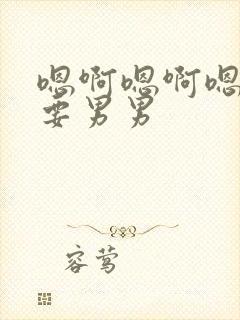 嗯啊嗯啊嗯
要男男
容莺